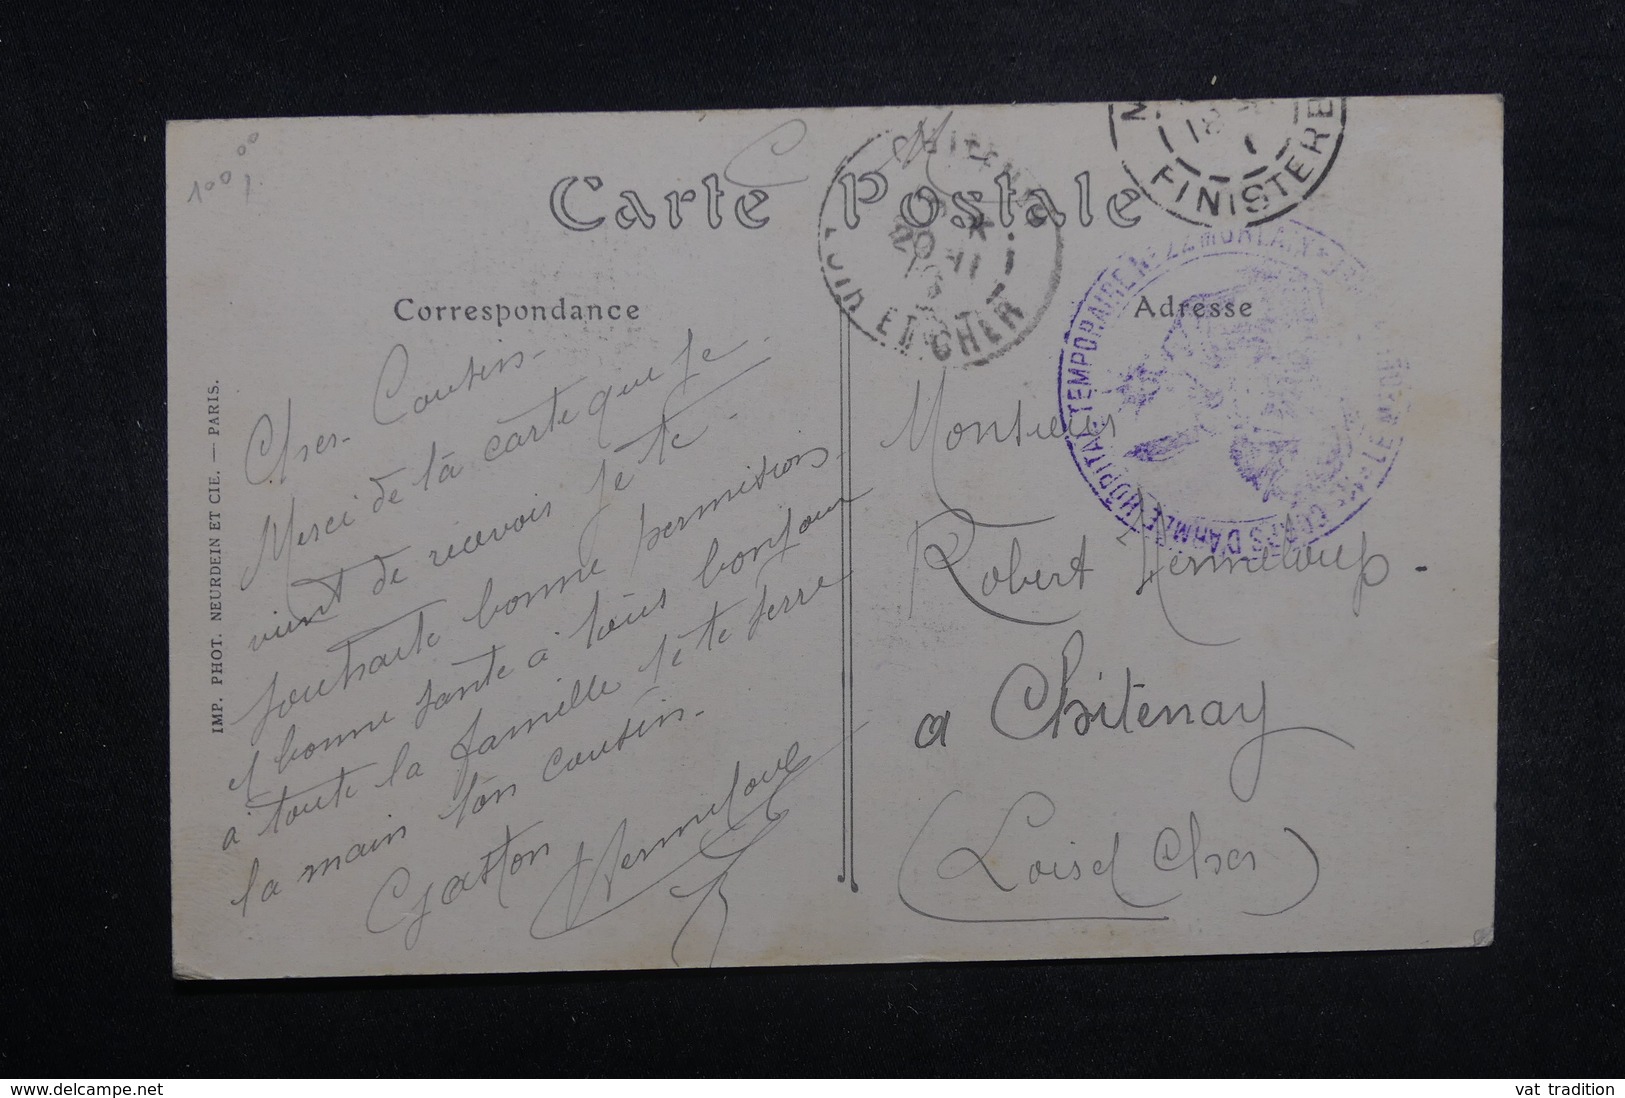 100
Carte Postale
Correspondance
Adresse
IMP. PHOT. NEURDEIN ET CIE. — PARIS.
FINISTERE
LOIR ET CHER
HOPITAL TEMPORAIRE No 22 MORLAIX
CORPS D'ARMÉE
F. M
Cher Cousin -
Merci de la carte que je
vient de recevoir je te
souhaite bonne permition
et bonne sante a tous bonjour
a toute la famille je te serre
la main ton cousin.
Gaston
Monsieur
Robert
a Chitenay
(Loir et Cher)
delcampe.net
vat_tradition